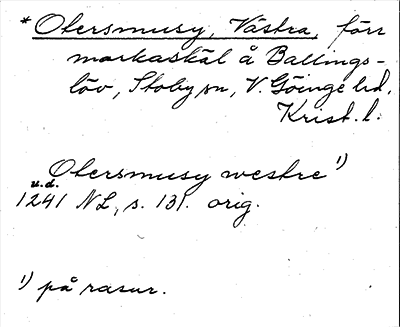 * Otersmusy, Västra, förr
markaskäl å Ballings-
löv, Stoby sn, V. Göinge hd.
Krist. l.
Otersmusy westre ¹)
u.d.
1241 NL, s. 131. orig.
¹) på rasur.